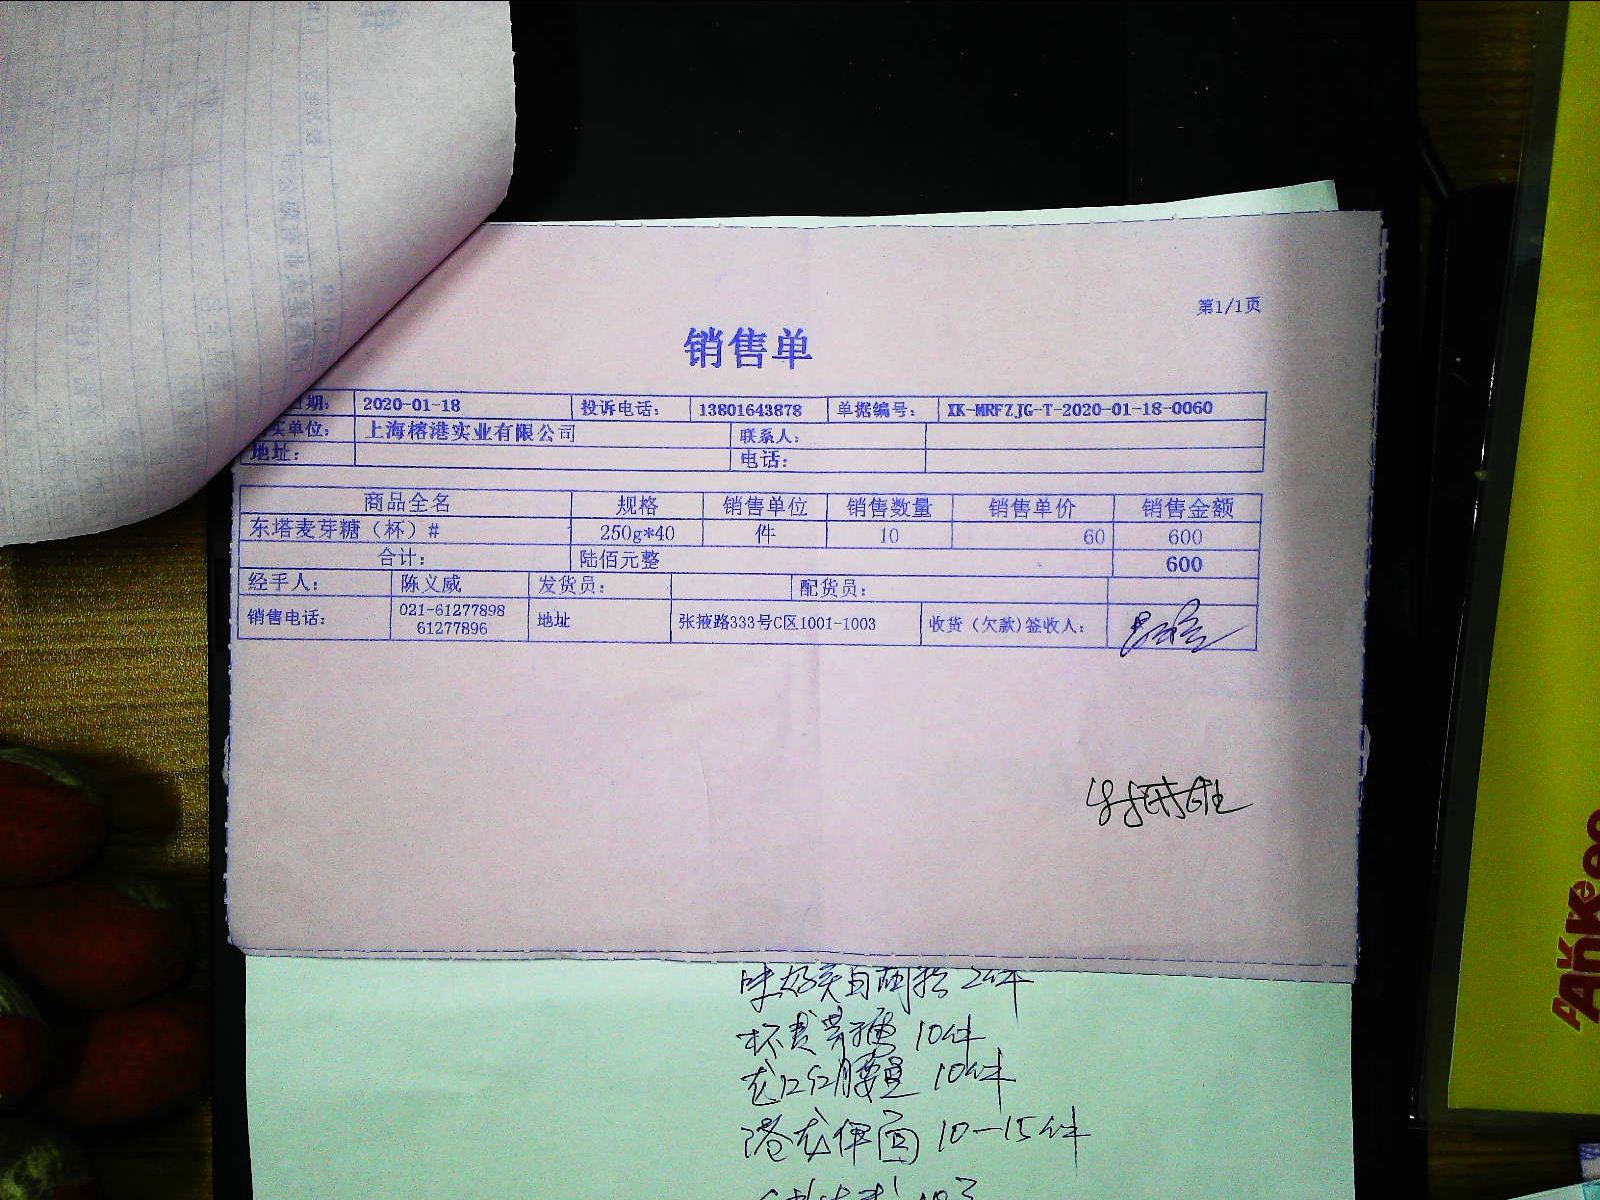 第1/1页
销售单
日期： 2020-01-18 投诉电话： 13801643878 单据编号： XK-MRFZJG-T-2020-01-18-0060
买单位： 上海榕港实业有限公司 联系人：
地址： 电话：
商品全名 规格 销售单位 销售数量 销售单价 销售金额
东塔麦芽糖（杯）# 250g*40 件 10 60 600
合计： 陆佰元整 600
经手人： 陈义威 发货员： 配货员：
销售电话： 021-61277898 61277896 地址 张掖路333号C区1001-1003 收货（欠款)签收人：
味好美自研粉 2件
杯麦芽糖 10件
龙口红腰豆 10件
港龙伊面 10-15件
Ankee